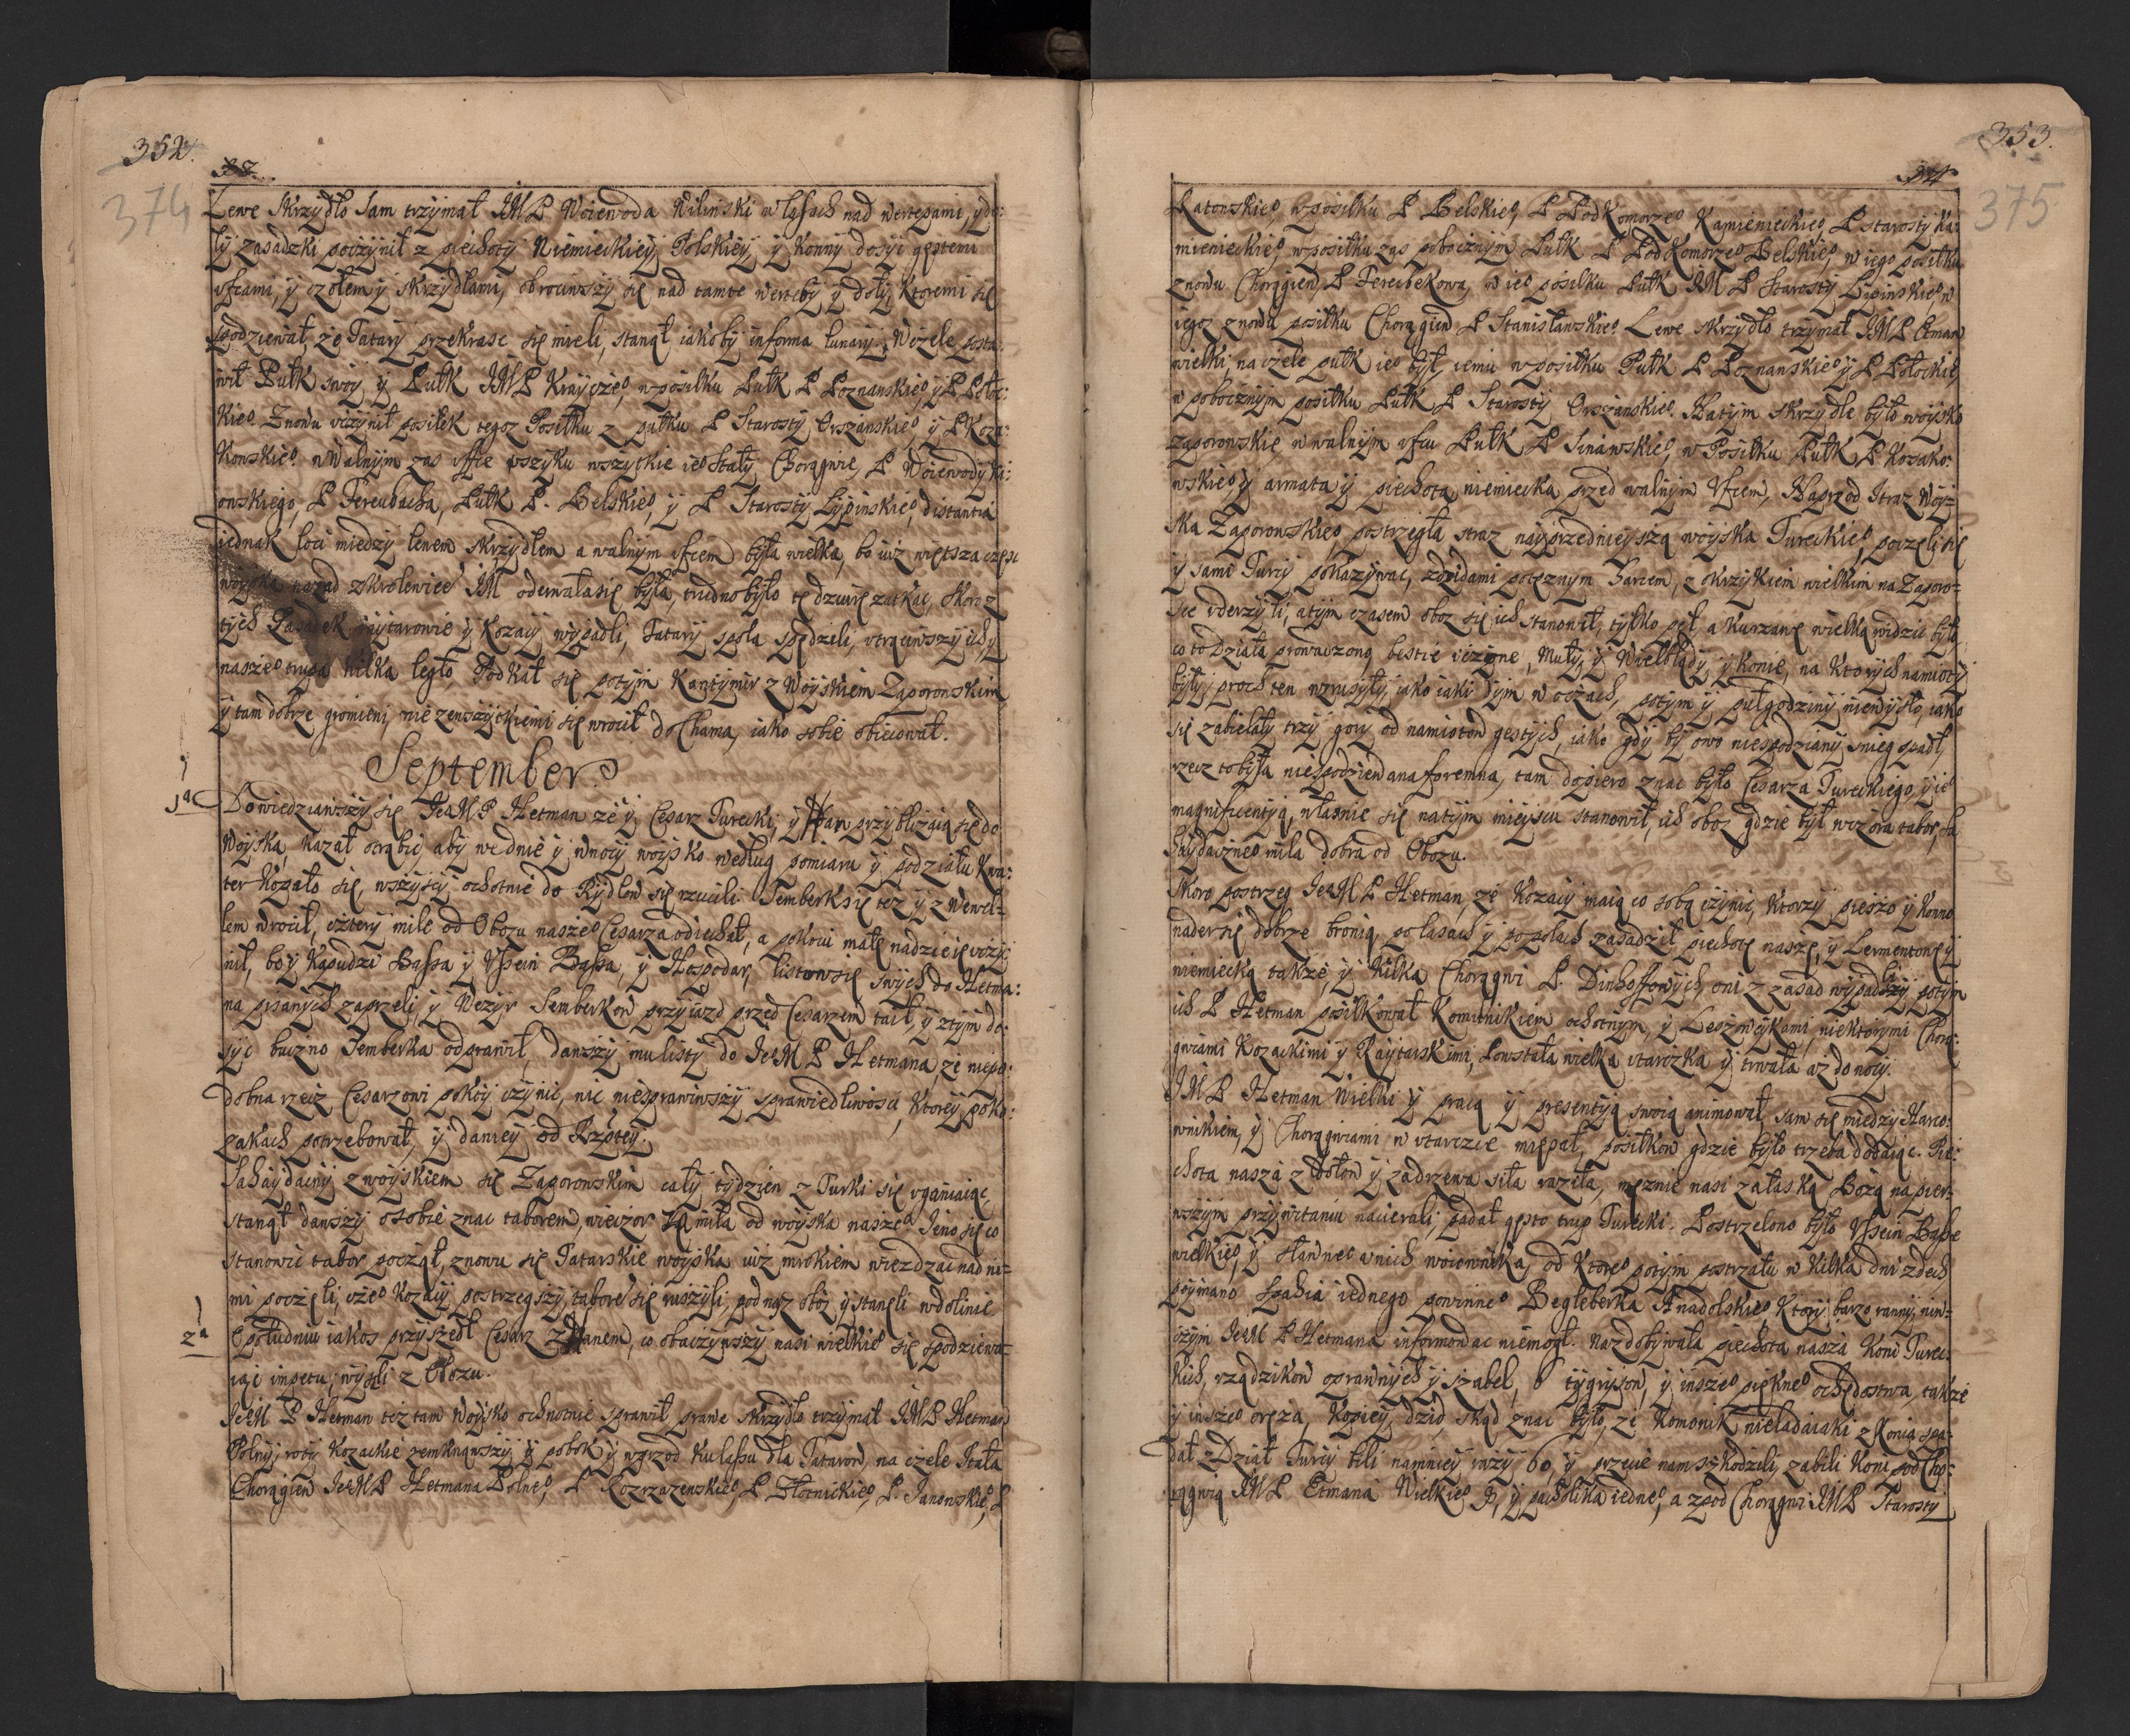 352.
374
Lewe Skrzydło Sam trzymał JMP Woiewoda Wilenski w lassach nad wertepami, y do:
ły zasadzki poczynił z piechoty Niemieckiey, Polskiey, y Konny dosyc gęstemi
ufcami, y czołem y skrzydłami, obrociwszy się nad tamte werteby y doły, Ktoremi się
spodziewał, że Tatary przekrasc się mieli, stanął iakoby in forma lunary. W czele posta:
wił Pułk swoy y Pułk JMP Krayczeo, w posiłku Pułk P Poznanskieo, y P Potoc:
kieo. Znowu uczynił posiłek tegoz Posiłku z pułku P Starosty Orszanskieo y P Koza:
Kowskieo. W Walnym zas uffie w szyku wszytkie ieo Stały Chorągwie, P Woiewody Ki:
iowskiego, P Fereubacha, Pułk P. Belskieo, y P Starosty Lypinskieo, distantia
iednak loci miedzy lewem skrzydłem a walnym ufcem była wielka, bo iuż większa częsc
woyska nazad z Krolewicem JM oderwała się była, trudno było tę dziurę zatkac, skoro z
tych Zasadek raytarowie y Kozacy wypadli, Tatary z pola spędzili, utraciwszy ich, y
naszeo trupa kilka legło, Potkał się potym Kantymir z Woyskiem Zaporowskim
y tam dobrze gromieni, nie ze wszytkiemi się wrocił do Chama, iako sobie obiecował.
September
1a Dowiedziawszy się JeoMP Hetman że y Cesarz Turecki, y Han przybliżaią się do
Woyska, kazał otrąbic, aby we dnie y w nocy woysko według pomiaru y podziału Kwa:
ter Kopało się, wszyscy ochotnie do Rydlow się rzucili. Szemberk się też y z Wewel:
lem wrocił, cztery mile od Obozu naszeo Cesarza odiechał, a pokoiu małą nadzieię uczy:
nił, bo y Kapudzi Bassa y Ussein Bassa, y Hospodar, listow się swych do Hetma:
na pisanych zaprzeli, y Wezyr Szemberkow przyiazd przed Cesarzem taił, y z tym do:
syc buczno Szemberka odprawił, dawszy mu listy do JeoM P Hetmana, że niepo:
dobna rzecz Cesarzowi pokoy czynic, nic niesprawiwszy sprawiedliwosci, Ktorey po Ko:
zakach potrzebował, y daniey od Rzptey.
Sahaydaczny z woyskiem się Zaporowskim cały tydzien z Turki się uganiaiąc
stanął dawszy o sobie znac taborem, wieczor mila od woyska naszeo. Jeno się co
stanowic tabor począł, znowu się Tatarskie woyska iuż mrokiem wiezdzac nad ni:
mi poczęli, czeo Kozacy postrzegszy, taborem się ruszyli, pod nasz oboz y stanęli w dolinie
2a O południu iakos przyszedł Cesarz z Hanem, co obaczywszy nasi wielkieo się spodziewa:
iąc impetu, wyszli z Obozu.
JeoM P Hetman też tam Woysko ochotnie sprawił, prawe skrzydło trzymał JMP Hetman
Polny, roty Kozackie zemknąwszy y pobok y wprzod ku lassu dla Tatarow, na czele Stała
Chorągiew JeoMP Hetmana Polneo, P Rozrazewskieo, P Złotnickieo, P. Janowskieo, P
353.
375
Ratowskieo w posiłku P Belskieo, P Podkomorzeo Kamienieckieo, P starosty Ka:
mienieckieo, w posiłku zas pobocznym Pułk P Podkomorzeo Belskieo, w iego posiłku
znowu Chorągiew P Fereubekowa, w ieo posiłku Pułk JM P Starosty Lypinskieo, w
iegoz znowu posiłku Chorągiew P Stanisławskieo. Lewe skrzydło trzymał JMP Etman
wielki, na czele pułk ieo był, iemu w posiłku Pułk P Poznanskieo y P Potockieo,
w pobocznym posiłku Pułk P Starosty Orszanskieo. Na tym skrzydle było woysko
zaporowskie, w walnym ufcu Pułk P Sinawskieo, w Posiłku Pułk P Kosako:
wskieo, y armata y piechota niemiecka przed walnym Ufcem, Naprzod straz Woy:
ska Zaporowskieo postrzegła straz nayprzednieyszą woyska Tureckieo, poczęli się
y sami Turcy pokazywac, z dzidami potęznym harcem, z okrzykiem wielkim na Zaporo:
sce uderzyli, a tym czasem oboz się ich stanowił, tylko pył, a kurzawę wielką widzic było,
co to Działa prowadzono, bestie iuczne, Muły, y Wielbłądy, y Konie, na Ktorych namioty
były, proch ten wzrusyły, iako iaki dym w oczach, potym y puł godziny niewyszło, iako
się zabielały trzy gory od namiotow gęstych, iako gdy by owo niespodziany snieg spadł,
rzecz to była niespodziewana foremna, tam dopiero znac było Cesarza Tureckiego, y ieo
magnificentyą, własnie się na tym mieyscu stanowił, ich oboz gdzie był wczora tabor, Sa:
haydaczneo mila dobra od Obozu.
Skoro postrzeg JeoM P Hetman, że Kozacy maią co sobą czynic, Ktorzy pieszo y konno
nader się dobrze bronią, po lasach y po polach zasadził piechotę naszę, y Lermentowę y
niemiecką także, y kilka Chorągwi P. Dinhoffowych, oni z zasad wypadszy, potym
ich P Hetman posiłkował Komunikiem ochotnym, y Leszowczykami, niektorymi Chorą:
gwiami Kozackimi y Raytarskimi, Powstała wielka utarczka y trwała aż do nocy.
JMP Hetman Wielki y pracą y presentyą swoią animował, sam się miedzy Harco:
wnikiem, y Chorągwiami w utarczce mięszał, posiłkow gdzie było trzeba dodaiąc. Pie:
chota nasza z dołow y za drzewa siła raziła, męznie nasi za łaską Bożą na pier:
wszym przywitaniu nacierali, padał gęsto trup Turecki. Postrzelono było Ussein Basse
wielkieo, y sławneo u nich woiownika, od ktoreo potym postrzału w kilka dni zdech
poymano Spahia iednego powinneo Beglerbeka Anadolskieo, Ktory barzo ranny, niw:
czym JeoM P Hetmana informowac niemogł. Nazdobywała piechota nasza Koni Turec:
kich, rządzikow oprawnych y szabel, tygrysow, y inszeo pięknеo ochędostwa, także
y inszeo oręża, Kopiey, dzid, skąd znac było, że Komonik nieladaiaki z Konia spa:
dał. z Dział Turcy bili namniey razy 60, y przecie nam szkodzili, zabili Koni pod Cho:
rągwią JMP Etmana Wielkieo, y pacholika iedneo, a z pod Chorągwi JMP Starosty